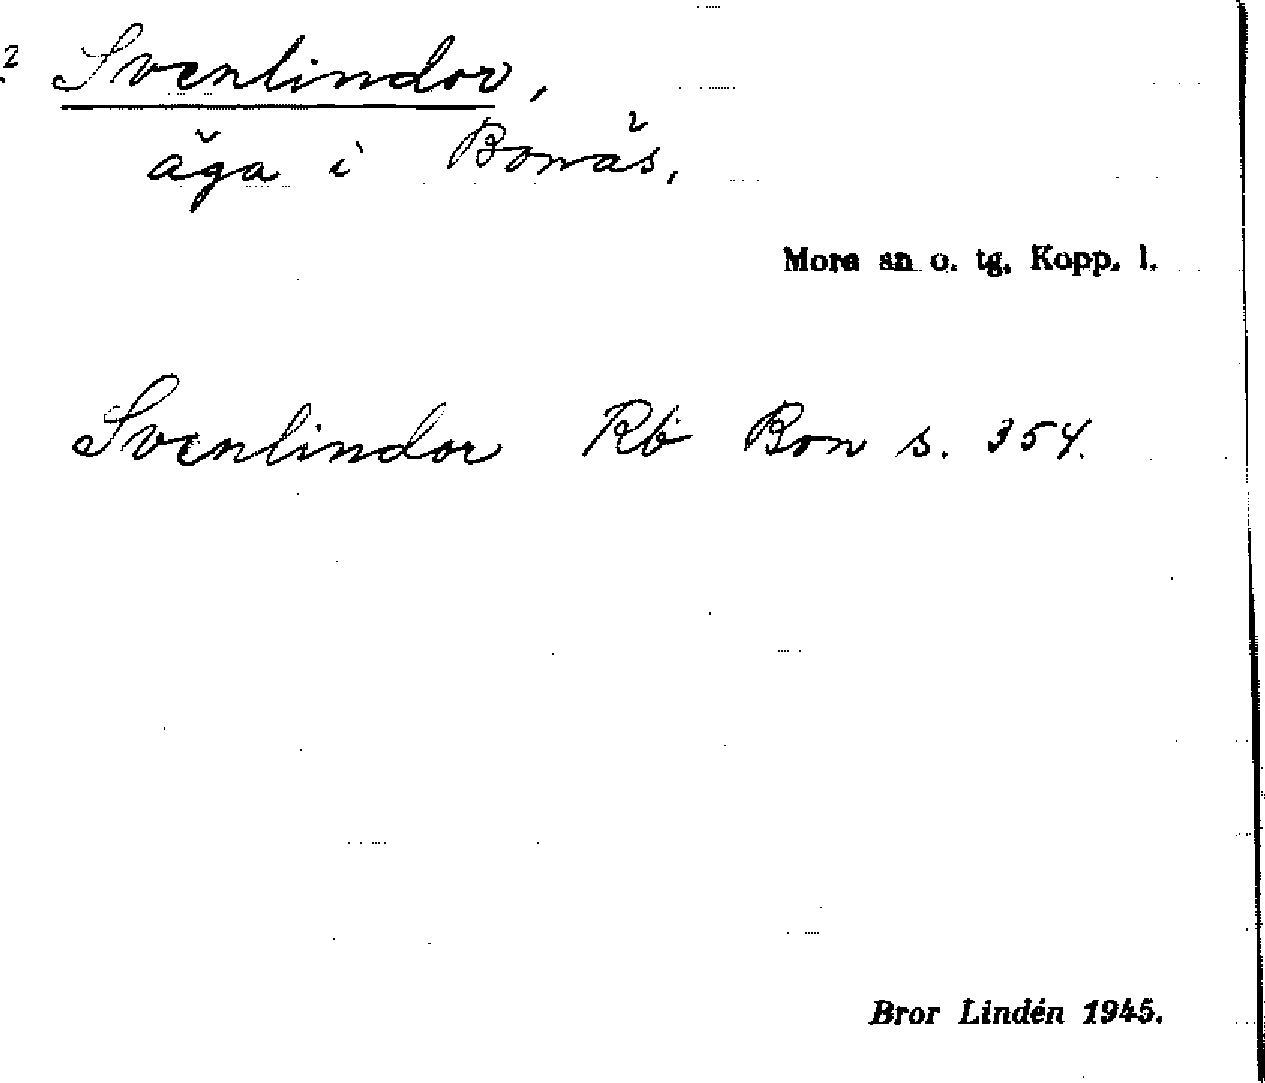 Svenlindor,
äga i Bonäs.
Mora sn o. tg. Kopp. l.
Svenlindor Rb Bon s. 354.
Bror Lindén 1945.